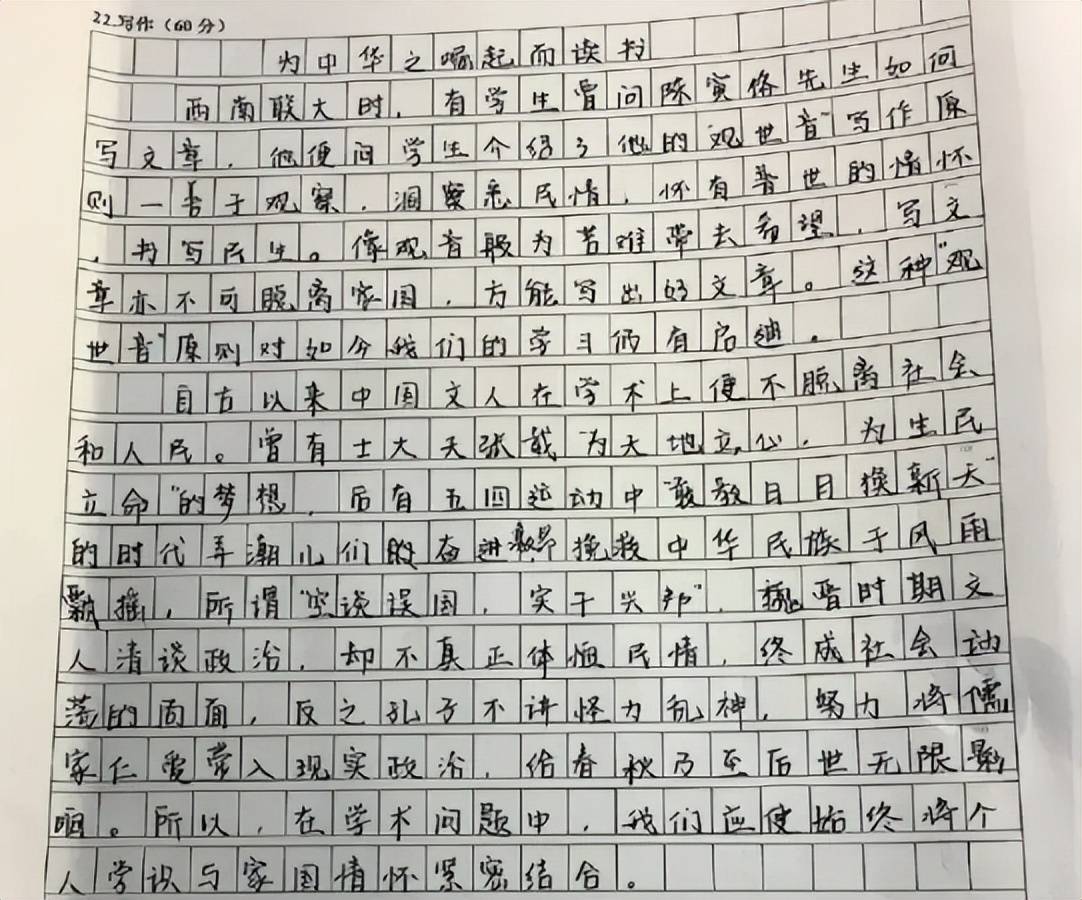 22.写作（60分）
为中华之崛起而读书
西南联大时，有学生曾问陈寅恪先生如何
写文章，他便问学生介绍了他的观世音"写作原
则一善于观察，洞察悉民情，怀有普世的情怀
，书写民生。像观音般为苦难带去希望，写文
章亦不可脱离家国，方能写出好文章。这种"观
世音"原则对如今我们的学习仍有启迪。
自古以来中国文人在学术上便不脱离社会
和人民。曾有士大夫张载"为天地立心，为生民
立命"的梦想，后有五四运动中"敢教日月换新天"
的时代弄潮儿们的奋进挽救中华民族于风雨
飘摇，所谓"空谈误国，实干兴邦"，魏晋时期文
人清谈政治，却不真正体恤民情，终成社会动
荡的局面，反之孔子不讲怪力乱神，努力将儒
家仁爱带入现实政治，给春秋乃至后世无限影
响。所以，在学术问题中，我们应使始终将个
人学识与家国情怀紧密结合。